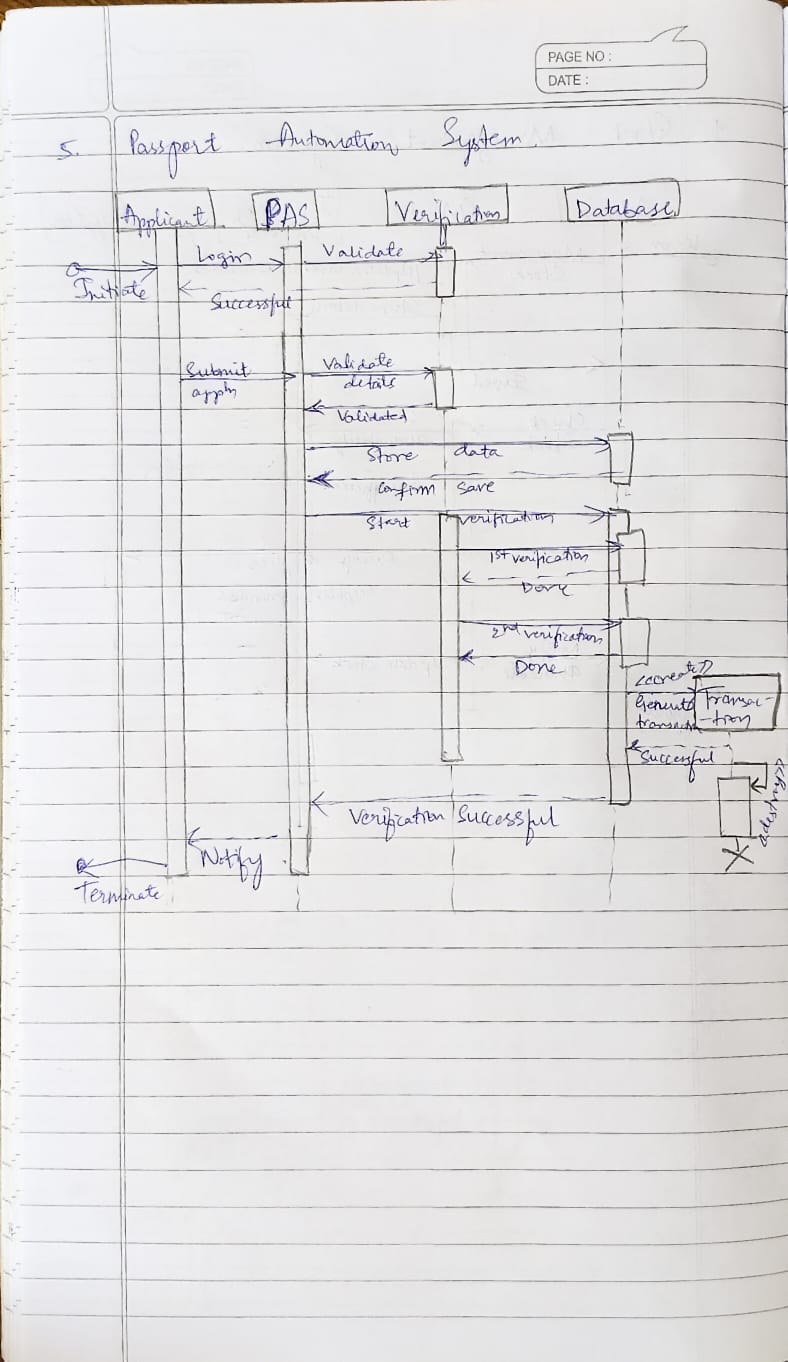 PAGE NO :
DATE :
5. Passport Automation System.
Applicant PAS Verification Database
Login Validate
Initiate
Successful
Submit Validate
details
Validated
Store data
Confirm save
Start verification
1st verification
Done
2nd verification
Done
<<create>>
Generate Transac-
-tion
Successful
<<destroy>>
Verification Successful
Notify
Terminate